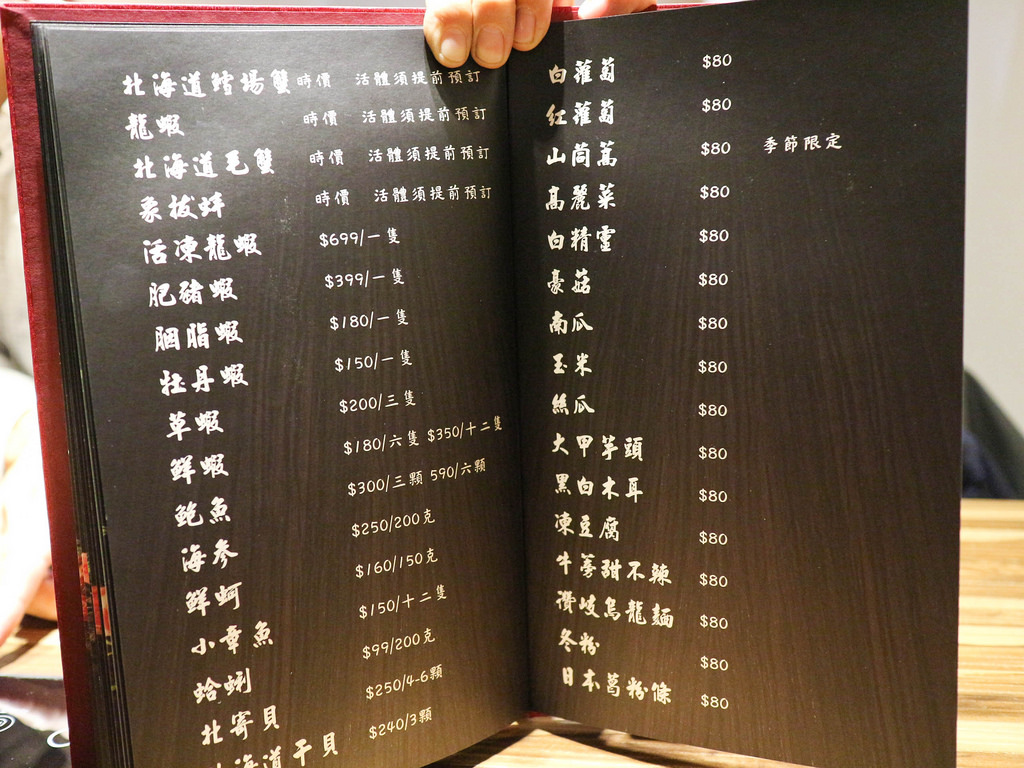 北海道鱈場蟹 時價 活體須提前預訂
龍蝦 時價 活體須提前預訂
北海道毛蟹 時價 活體須提前預訂
象拔蚌 時價 活體須提前預訂
活凍龍蝦 $699/一隻
肥豬蝦 $399/一隻
胭脂蝦 $180/一隻
牡丹蝦 $150/一隻
草蝦 $200/三隻
鮮蝦 $180/六隻 $350/十二隻
鮑魚 $300/三顆 590/六顆
海參 $250/200克
鮮蚵 $160/150克
小章魚 $150/十二隻
蛤蜊 $99/200克
北寄貝 $250/4-6顆
海道干貝 $240/3顆
白蘿蔔 $80
紅蘿蔔 $80
山茼蒿 $80 季節限定
高麗菜 $80
白精靈 $80
豪菇 $80
南瓜 $80
玉米 $80
絲瓜 $80
大甲芋頭 $80
黑白木耳 $80
凍豆腐 $80
牛蒡甜不辣 $80
讚岐烏龍麵 $80
冬粉 $80
日本葛粉條 $80